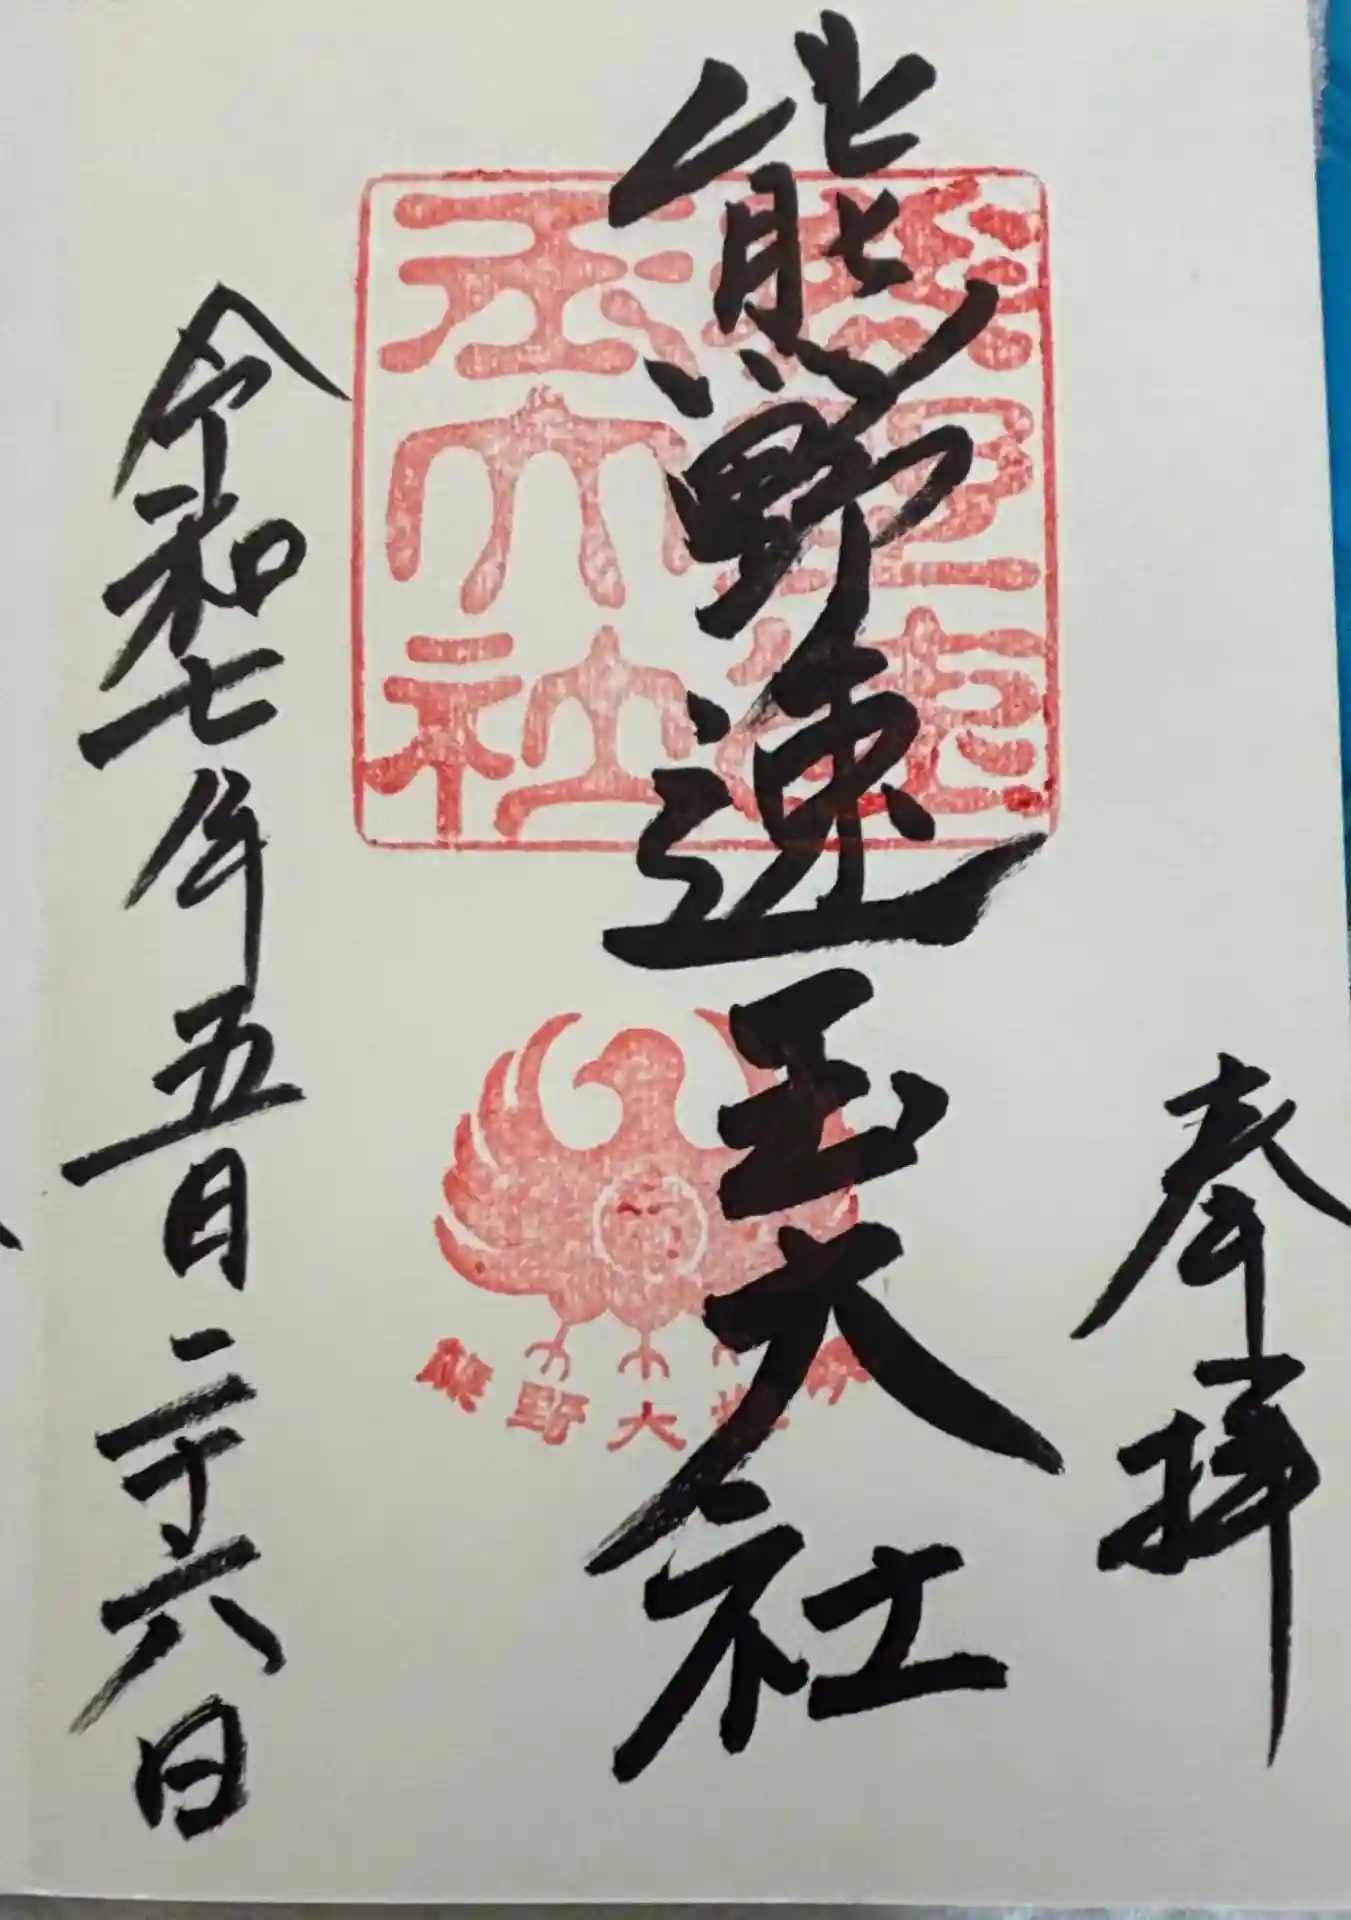 奉拝
熊野速玉大社
熊野速
玉大社
熊野大権現
令和七年五月二十六日